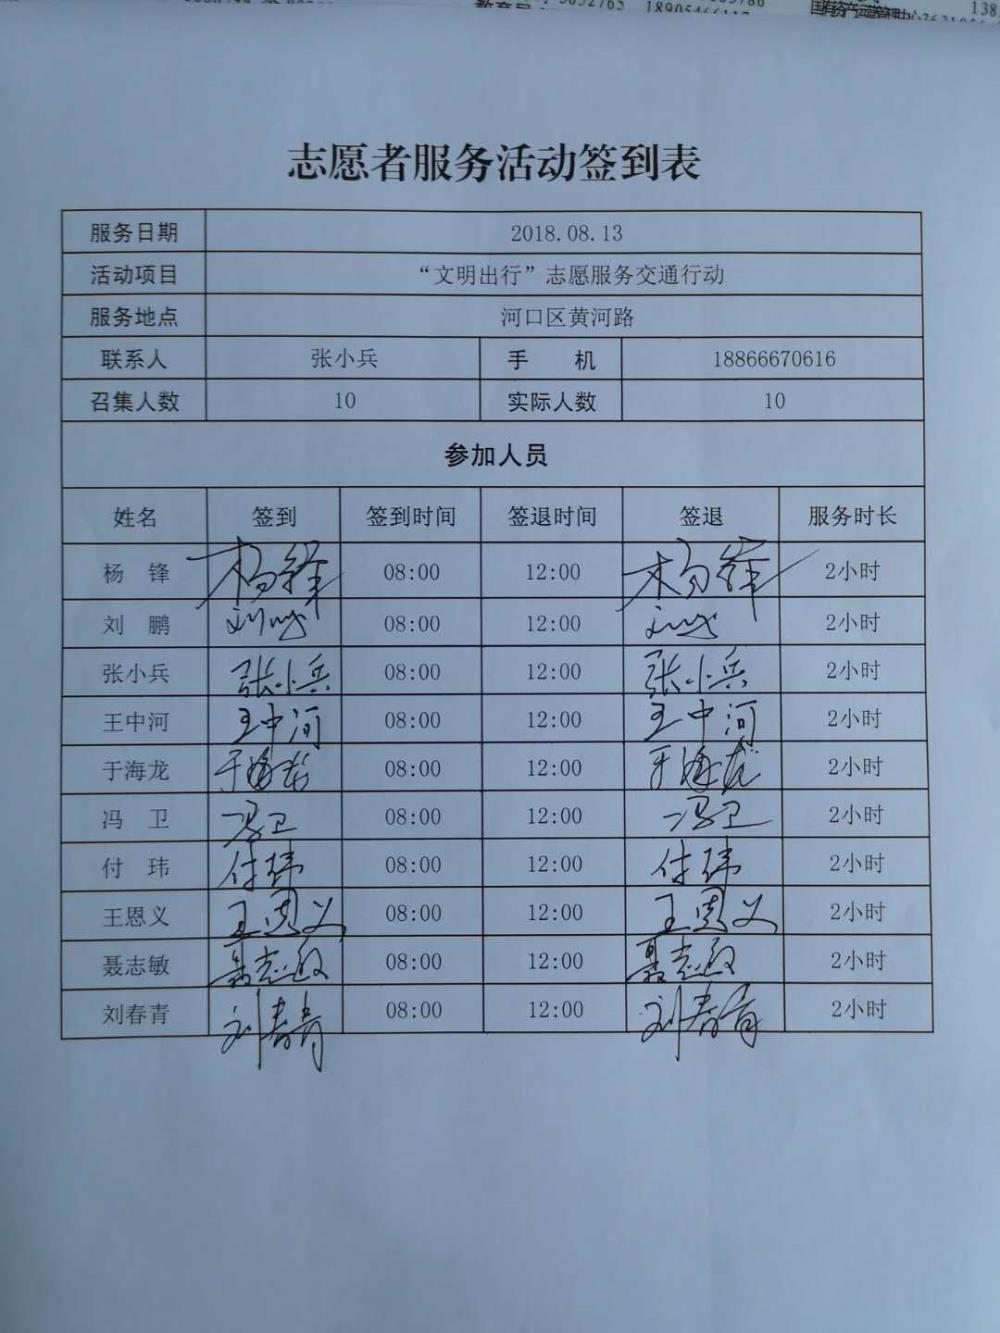 教育局
志愿者服务活动签到表
服务日期 2018.08.13
活动项目 “文明出行”志愿服务交通行动
服务地点 河口区黄河路
联系人 张小兵 手 机 18866670616
召集人数 10 实际人数 10
参加人员
姓名 签到 签到时间 签退时间 签退 服务时长
杨 锋 杨锋 08:00 12:00 杨锋 2小时
刘 鹏 刘鹏 08:00 12:00 刘鹏 2小时
张小兵 张小兵 08:00 12:00 张小兵 2小时
王中河 王中河 08:00 12:00 王中河 2小时
于海龙 于海龙 08:00 12:00 于海龙 2小时
冯 卫 冯卫 08:00 12:00 冯卫 2小时
付 玮 付玮 08:00 12:00 付玮 2小时
王恩义 王恩义 08:00 12:00 王恩义 2小时
聂志敏 聂志敏 08:00 12:00 聂志敏 2小时
刘春青 刘春青 08:00 12:00 刘春青 2小时